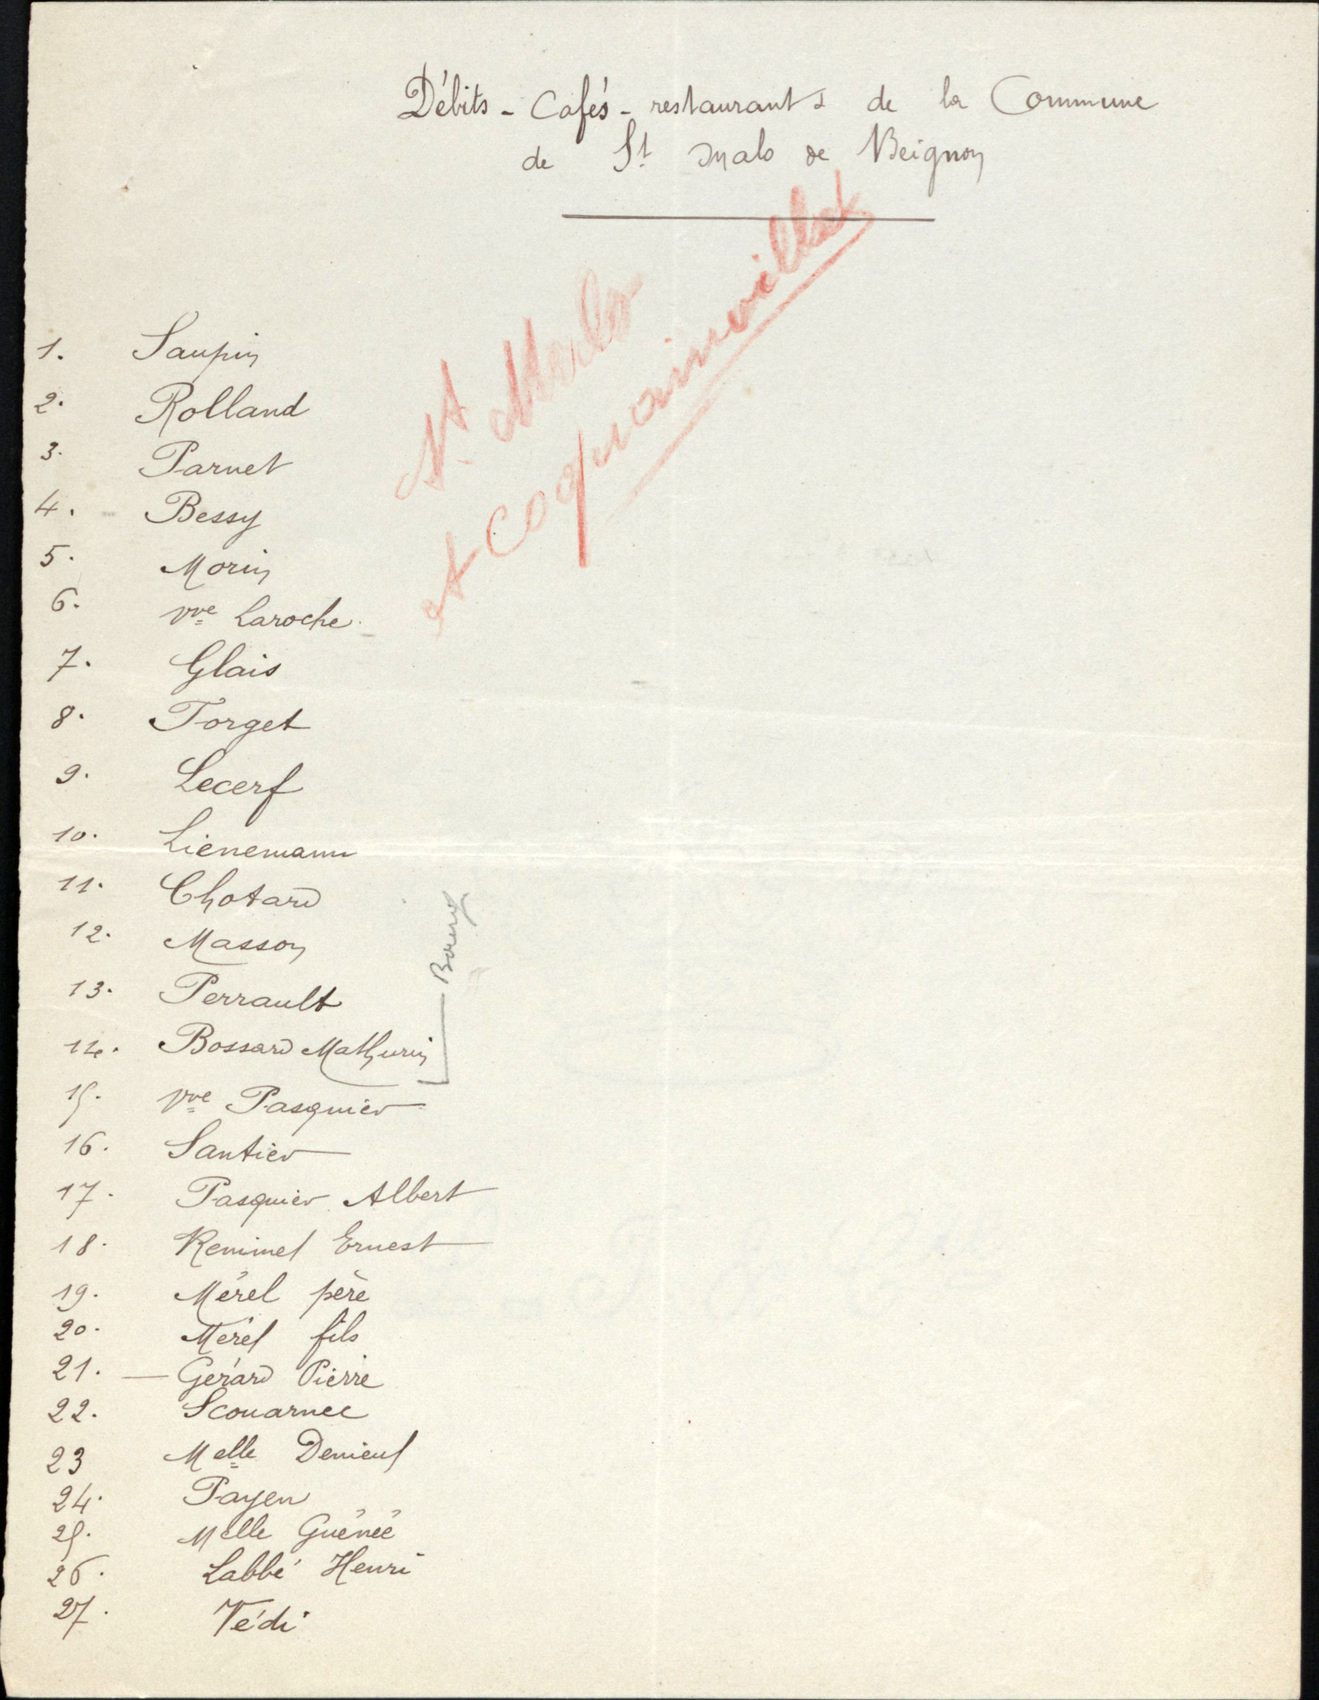 Débits - Cafés - restaurants de la Commune
de St Malo de Beignon
St Malo
et Coquainvillet
1. Saupin
2. Rolland
3. Parnet
4. Bessy
5. Morin
6. Vve Laroche
7. Glais
8. Forget
9. Lecerf
10. Lienemann
11. Chotard
12. Masson
13. Perrault
14. Bossard Mathurin
Bourg
15. Vve Pasquier
16. Santier
17. Pasquier Albert
18. Ernest
19. Mérel père
20. Mérel fils
21. — Gérard Pierre
22. Scouarnec
23 Melle Denieul
24. Payen
25. Melle Guénée
26. Labbé Henri
27. Védi